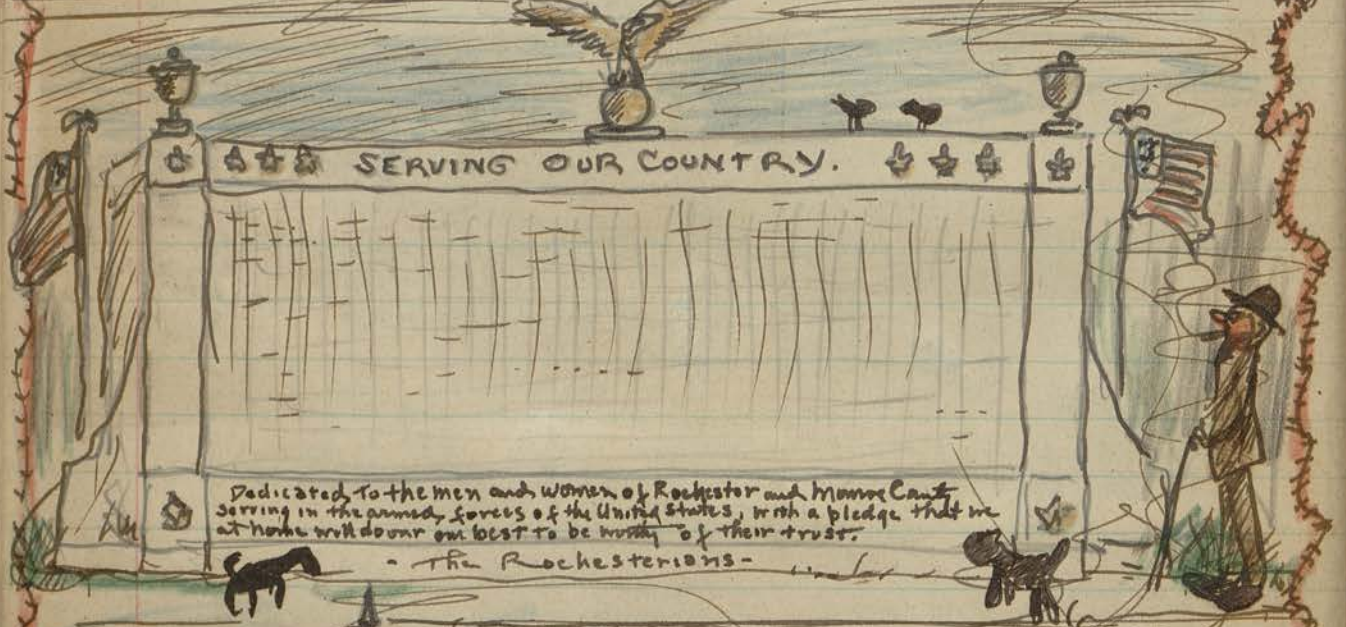 SERVING OUR COUNTRY.
Dedicated to the men and women of Rochester and Monroe County
serving in the armed forces of the United States, with a pledge that we
at home will do our our best to be worthy of their trust.
- The Rochesterians -